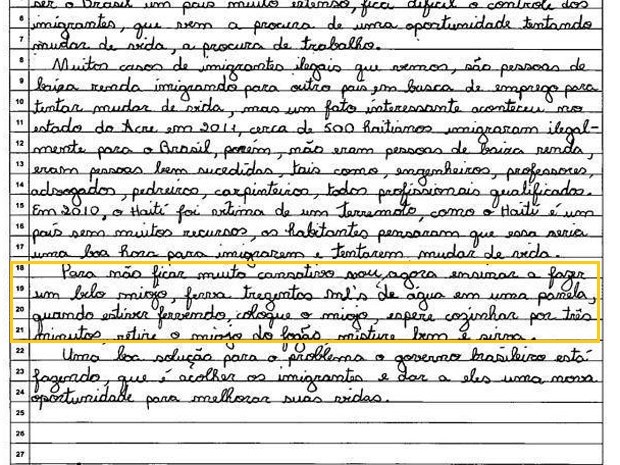 ser o Brasil um país muito extenso, fica difícil o controle dos
6 imigrantes, que vem a procura de uma oportunidade tentando
7 mudar de vida, a procura de trabalho.
8 Muitos casos de imigrantes ilegais que vemos, são pessoas de
9 baixa renda imigrando para outro país em busca de emprego para
10 tentar mudar de vida, mas um fato interessante aconteceu no
11 estado do Acre em 2011, cerca de 500 haitianos imigraram ilegal-
12 mente para o Brasil, porém, não eram pessoas de baixa renda,
13 eram pessoas bem sucedidas, tais como, engenheiros, professores,
14 advogados, pedreiros, carpinteiros, todos profissionais qualificados.
15 Em 2010, o Haiti foi vítima de um terremoto, como o Haiti é um
16 país sem muitos recursos, os habitantes pensaram que essa seria
17 uma boa hora para imigrarem e tentarem mudar de vida.
18 Para não ficar muito cansativo vou agora ensinar a fazer
19 um belo miojo, ferva trezentos ml's de água em uma panela,
20 quando estiver fervendo, coloque o miojo, espere cozinhar por três
21 minutos, retire o miojo do fogão, misture bem e sirva.
22 Uma boa solução para o problema o governo brasileiro está
23 fazendo, que é acolher os imigrantes e dar a eles uma nova
24 oportunidade para melhorar suas vidas.
25
26
27